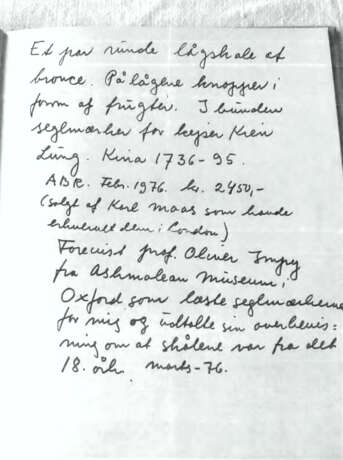 Et par runde lågskåle af
bronce. På lågene knopper i
form af frugter. I bunden
seglmærker for kejser Kien
Lung. Kina 1736-95.
ABR. Febr. 1976. kr. 2450,-
(solgt af Karl Maas som havde
erhvervett dem i London)
Forevist prof. Oliver Impy
fra Ashmolean Museum,
Oxford som læste seglmærkerne
for mig og udtalte sin overbevis=
ning om at skålene var fra det
18. årh. marts-76.